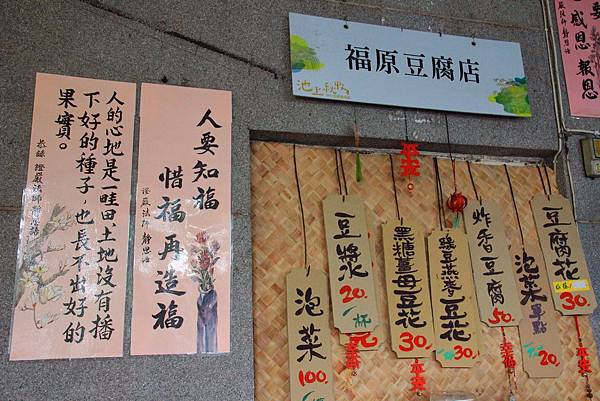 福原豆腐店
池上秋收
人的心地是一畦田、土地沒有播
下好的種子，也長不出好的
果實。
恭錄 證嚴法師 靜思語
人要知福
惜福 再造福
證嚴法師 靜思語
感恩報
泡菜
100.
豆漿
20.
一杯
元
平安
黑糖薑母豆花
30.
平安
綠豆燕麥豆花
30.
炸香豆腐
50.
幸福
泡菜單點
20.
豆腐花
30.
平安